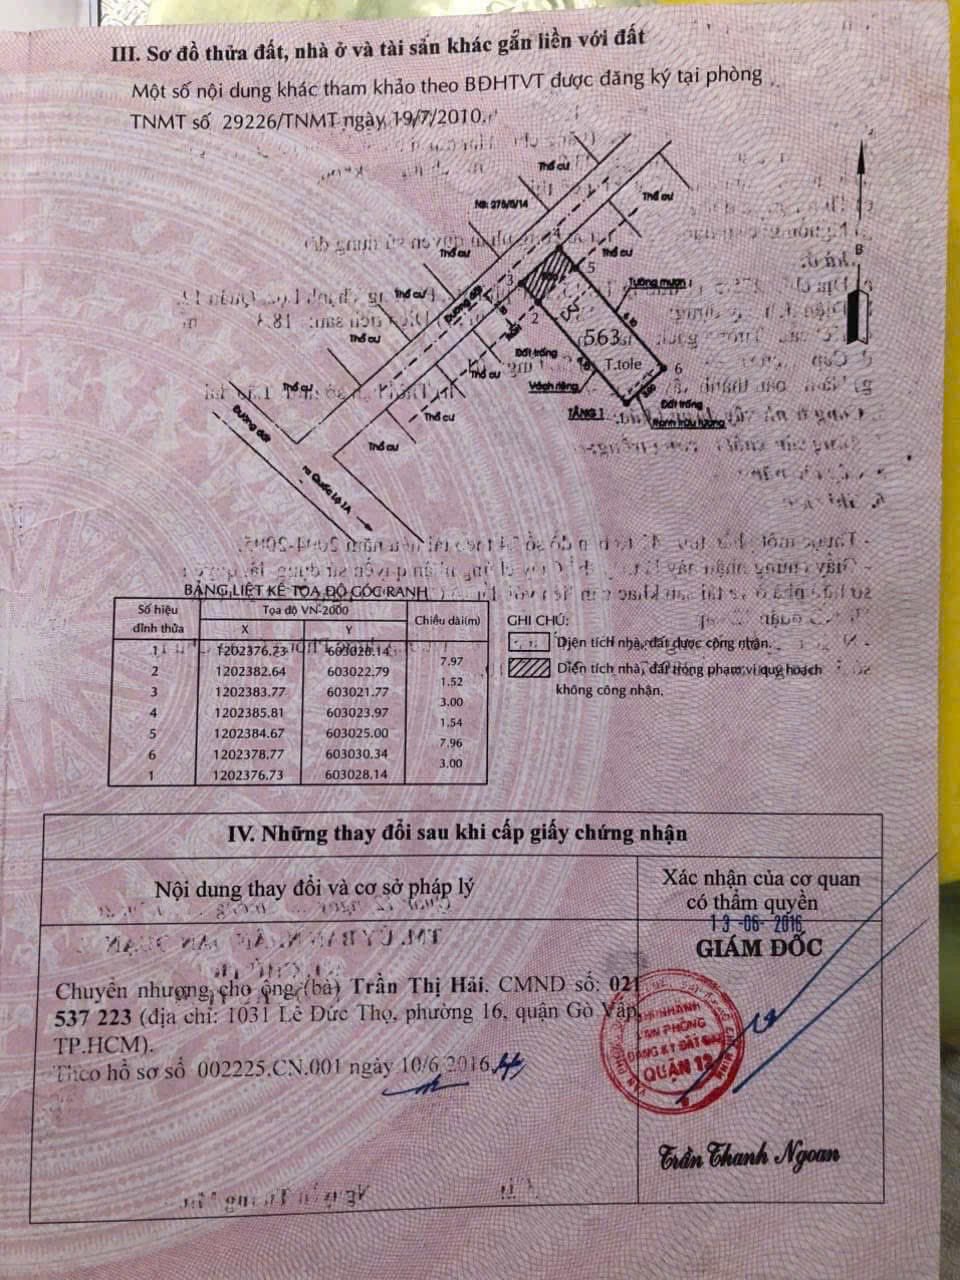 III. Sơ đồ thửa đất, nhà ở và tài sản khác gắn liền với đất
Một số nội dung khác tham khảo theo BĐHTVT được đăng ký tại phòng
TNMT số 29226/TNMT ngày 19/7/2010.
Thổ cư
Thổ cư
Thổ cư
Thổ cư
Thổ cư
Thổ cư
Thổ cư
Thổ cư
Thổ cư
Thổ cư
B
4
5
3
2
6
Tường mượn
Đường đất
563
T.tole
Đất trống
Vách riêng
TẦNG 1
Đất trống
Đường đất
ra Quốc Lộ 1A
BẢNG LIỆT KÊ TỌA ĐỘ GÓC RANH
Số hiệu đỉnh thửa Tọa độ VN-2000 Chiều dài(m)
X Y
1 1202376.73 603028.14
7.97
2 1202382.64 603022.79
1.52
3 1202383.77 603021.77
3.00
4 1202385.81 603023.97
1.54
5 1202384.67 603025.00
7.96
6 1202378.77 603030.34
3.00
1 1202376.73 603028.14
GHI CHÚ:
Diện tích nhà, đất được công nhận.
Diện tích nhà, đất trong phạm vi quy hoạch
không công nhận.
IV. Những thay đổi sau khi cấp giấy chứng nhận
Nội dung thay đổi và cơ sở pháp lý
Xác nhận của cơ quan
có thẩm quyền
13-06-2016
GIÁM ĐỐC
Chuyển nhượng cho ông (bà) Trần Thị Hải. CMND số: 021
537 223 (địa chỉ: 1031 Lê Đức Thọ, phường 16, quận Gò Vấp,
TP.HCM).
Theo hồ sơ số 002225.CN.001 ngày 10/6/2016.
CHI NHÁNH
VĂN PHÒNG
ĐĂNG KÝ ĐẤT ĐAI
QUẬN 12
Trần Thanh Ngoan